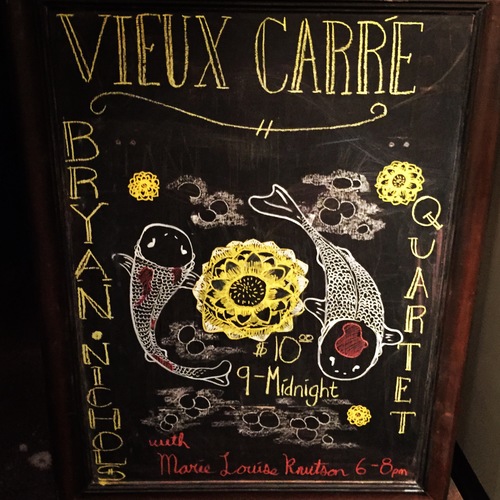 VIEUX CARRÉ
BRYAN • NICHOLS
QUARTET
$10⁰⁰
9-Midnight
with
Marie Louise Knutson 6-8pm